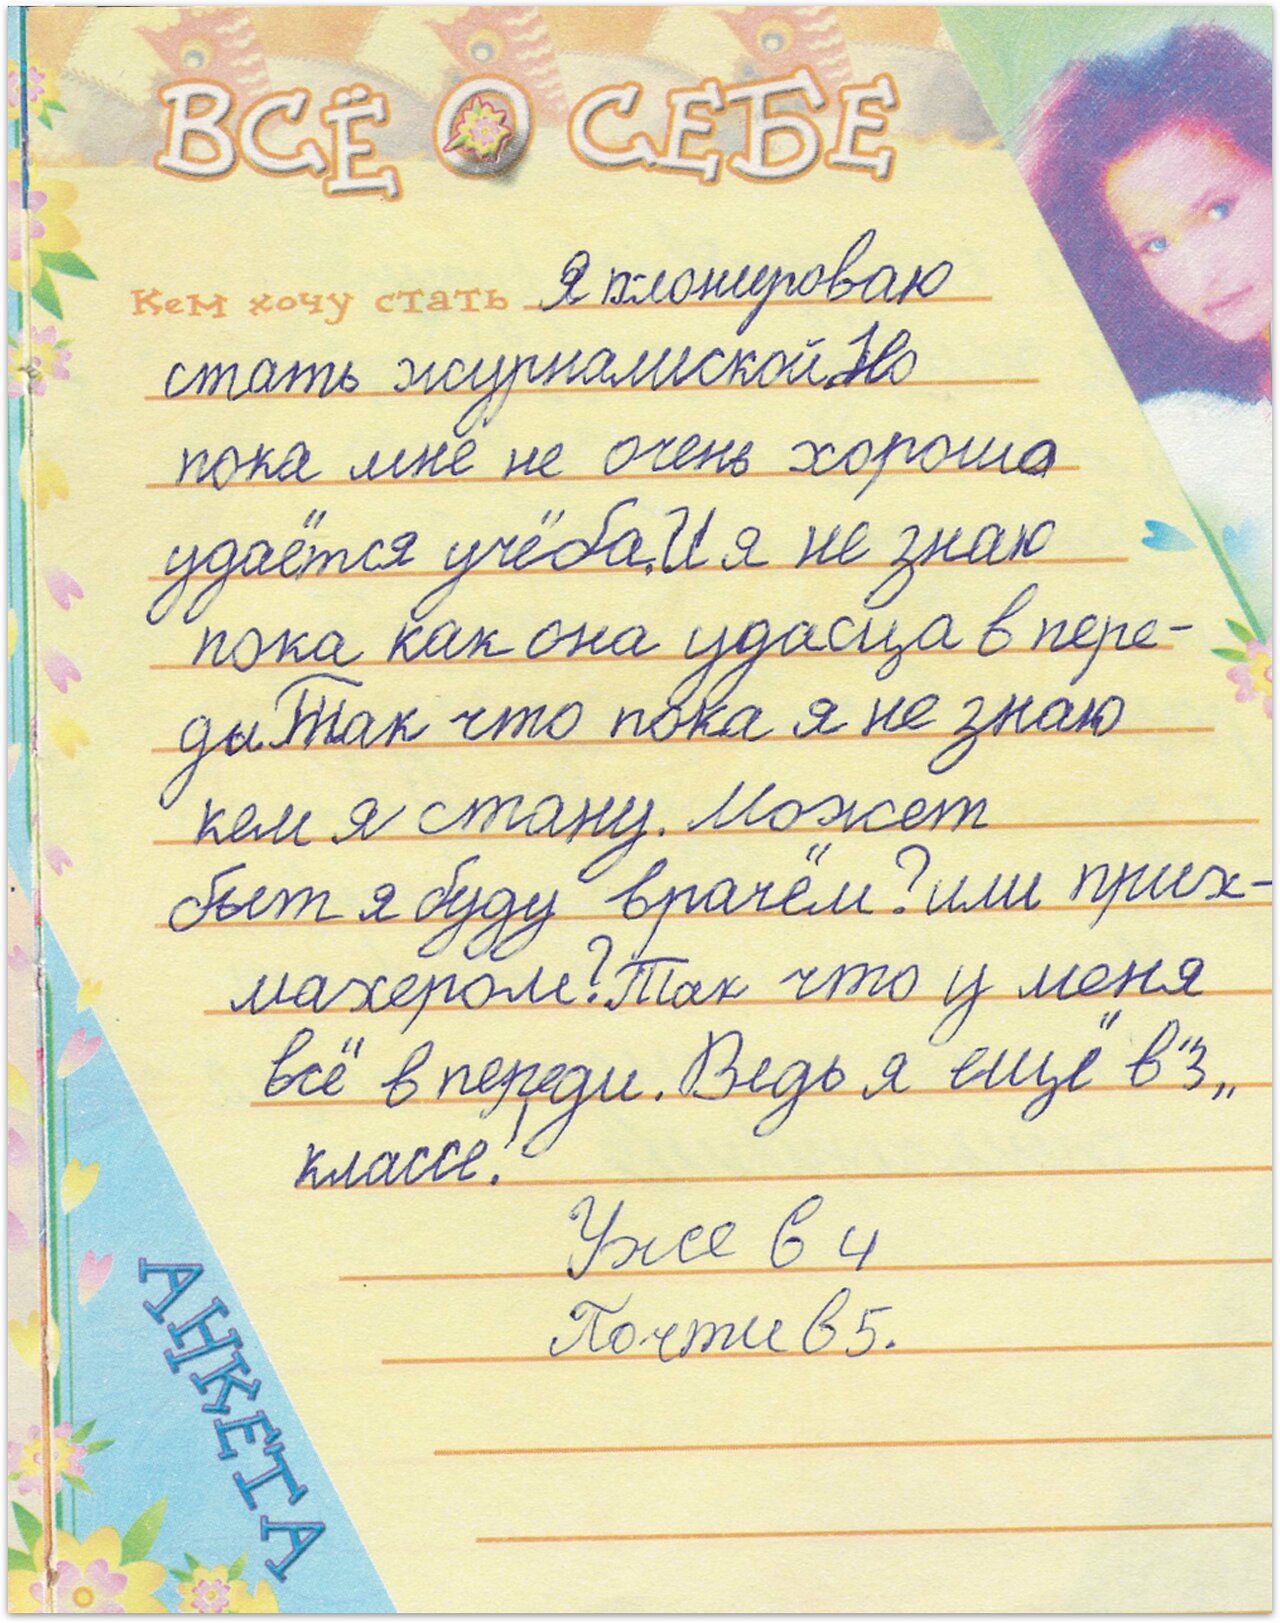 ВСЁ О СЕБЕ
Кем хочу стать Я плонироваю
стать журналиской. Но
пока мне не очень хорошо
удаётся учёба. И я не знаю
пока как она удасца в пере-
ды. Так что пока я не знаю
кем я стану. Может
быт я буду врачём? или прих-
махером? Так что у меня
всё в переди. Ведь я ещё в "3„
классе!
Уже в 4
Почти в 5.
АНКЕТА